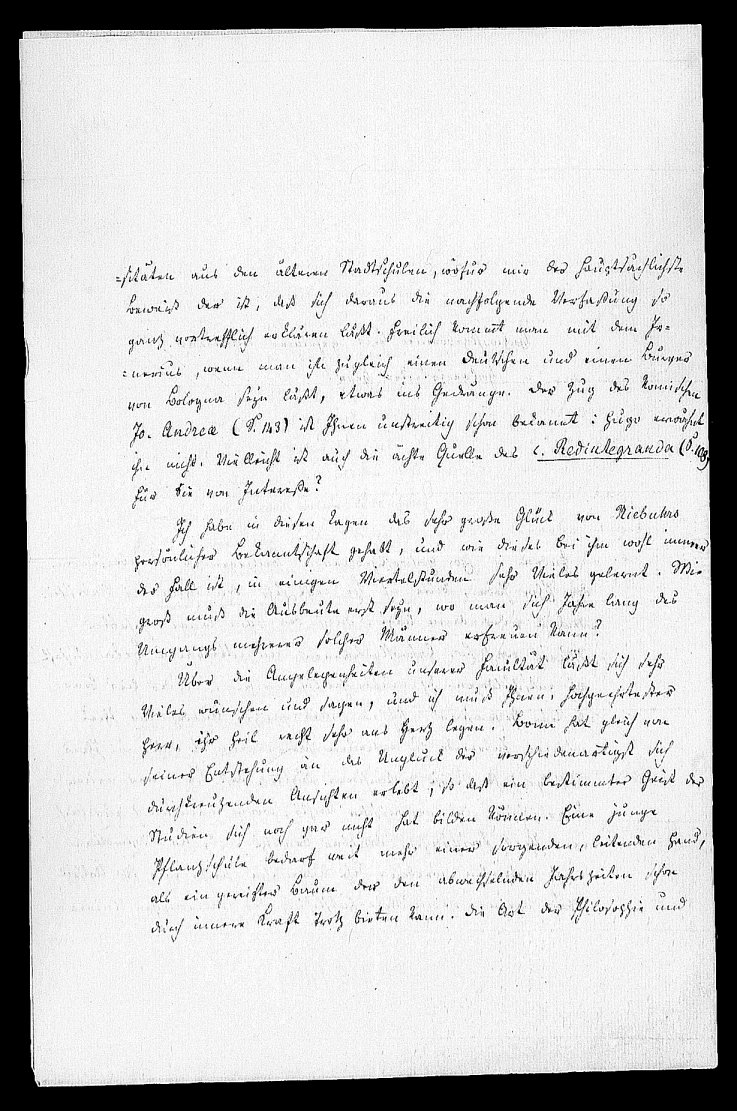 =sitäten aus den älteren Stadtschulen, wofür mir der hauptsächlichste
Beweiß der ist, daß sich daraus die nachfolgende Verfaßung so
ganz vortrefflich erklären läßt. Freilich kommt man mit dem Ir=
=nerius, wenn man ihn zugleich einen Deutschen und einen Bürger
von Bologna seyn läßt, etwas ins Gedränge. Der Zug des Komischen
Jo. Andreæ (S. 143) ist Ihnen unstreitig schon bekannt: Hugo erwähnt
ihn nicht. Vielleicht ist auch die ächte Quelle des c. Redintegranda (S. 108)
für Sie von Interesse?
Ich habe in diesen Tagen das sehr große Glück von Niebuhrs
persönlicher Bekanntschaft gehabt, und wie dieses bei ihm wohl immer
der Fall ist, in einigen Viertelstunden sehr Vieles gelernt. Wie
groß muß die Ausbeute erst seyn, wo man sich Jahre lang des
Umgangs mehrerer solcher Männer erfreuen kann?
Über die Angelegenheiten unserer Facultät läßt sich sehr
Vieles wünschen und sagen, und ich muß Ihnen, hochgeehrtester
Herr, ihr Heil recht sehr ans Herz legen. Bonn hat gleich von
seiner Entstehung an das Unglück der verschiedenartigst sich
durchkreuzenden Ansichten erlebt, so daß ein bestimmter Geist der
Studien sich noch gar nicht hat bilden können. Eine junge
Pflanzschule bedarf weit mehr einer sorgenden, leitenden Hand,
als ein gereifter Baum der den abwechselnden Jahrszeiten schon
durch innere Kraft Trotz bieten kann. Die Art der Philosophie und